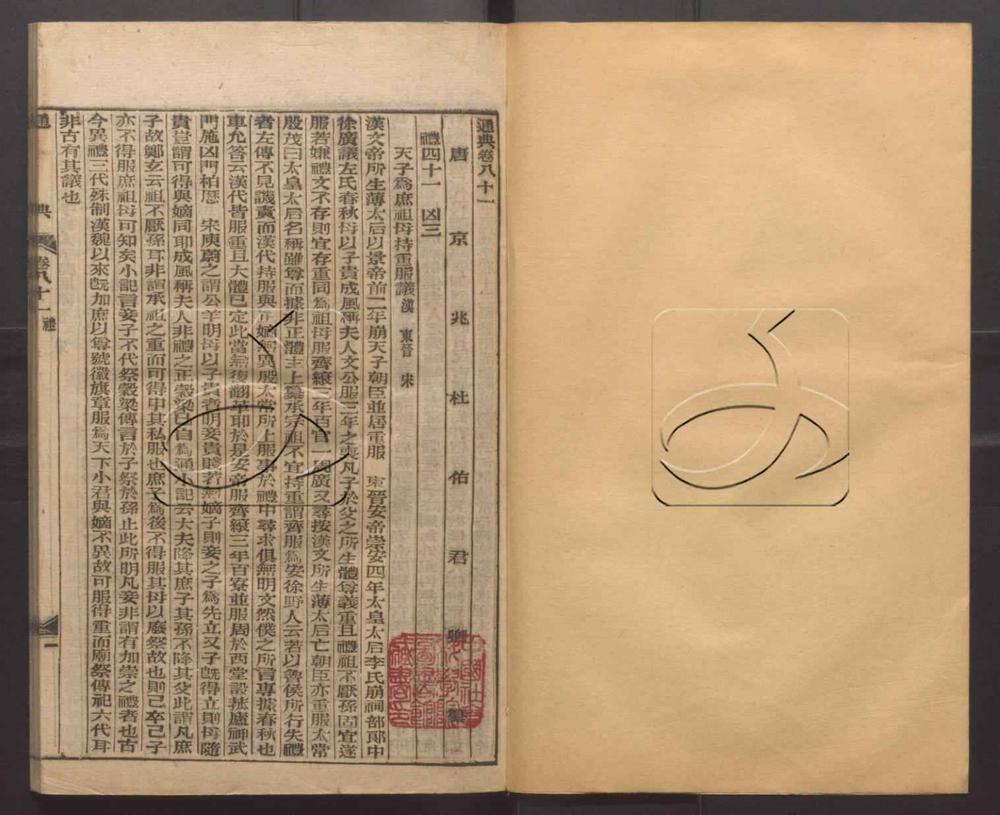 通典卷八十一
唐京兆杜佑君卿纂
禮四十一 凶三
天子爲庶祖母持重服議漢 東晉 宋
漢文帝所生薄太后以景帝前二年崩天子朝臣並居重服 東晉安帝崇安四年太皇太后李氏崩祠部郎中
徐廣議左氏春秋母以子貴成風稱夫人文公服三年之喪凡子於父之所生體尊義重且禮祖不厭孫固宜遂
服若嫌禮文不存則宜存重同爲祖母服齊縗三年百官一周廣又尋按漢文所生薄太后亡朝臣亦重服太常
殷茂曰太皇太后名稱雖尊而據非正體主上纂承宗祖不宜持重謂齊服爲安徐野人云若以魯侯所行失禮
者左傳不見譏責而漢代持服與正嫡無異殷太常所上服事於禮中尋求俱無明文然僕之所言專據春秋也
車允答云漢代皆服重且大體已定此當無復翻革耶於是安帝服齊縗三年百寮並服周於西堂設菰廬神武
門施凶門柏歷 宋庾蔚之謂公羊明母以子貴者明妾貴賤若無嫡子則妾之子爲先立又子旣得立則母隨
貴豈謂可得與嫡同耶成風稱夫人非禮之正穀梁已自爲通小記云大夫降其庶子其孫不降其父此謂凡庶
子故鄭玄云祖不厭孫耳非謂承祖之重而可得申其私服也庶子爲後不得服其母以廢祭故也則己卒己子
亦不得服庶祖母可知矣小記言妾子不代祭穀梁傳言於子祭於孫止此所明凡妾非謂有加崇之禮者也古
今異禮三代殊制漢魏以來旣加庶以尊號徽旗章服爲天下小君與嫡不異故可服得重而廟祭傳祀六代耳
非古有其議也
通典 卷八十一 禮 一